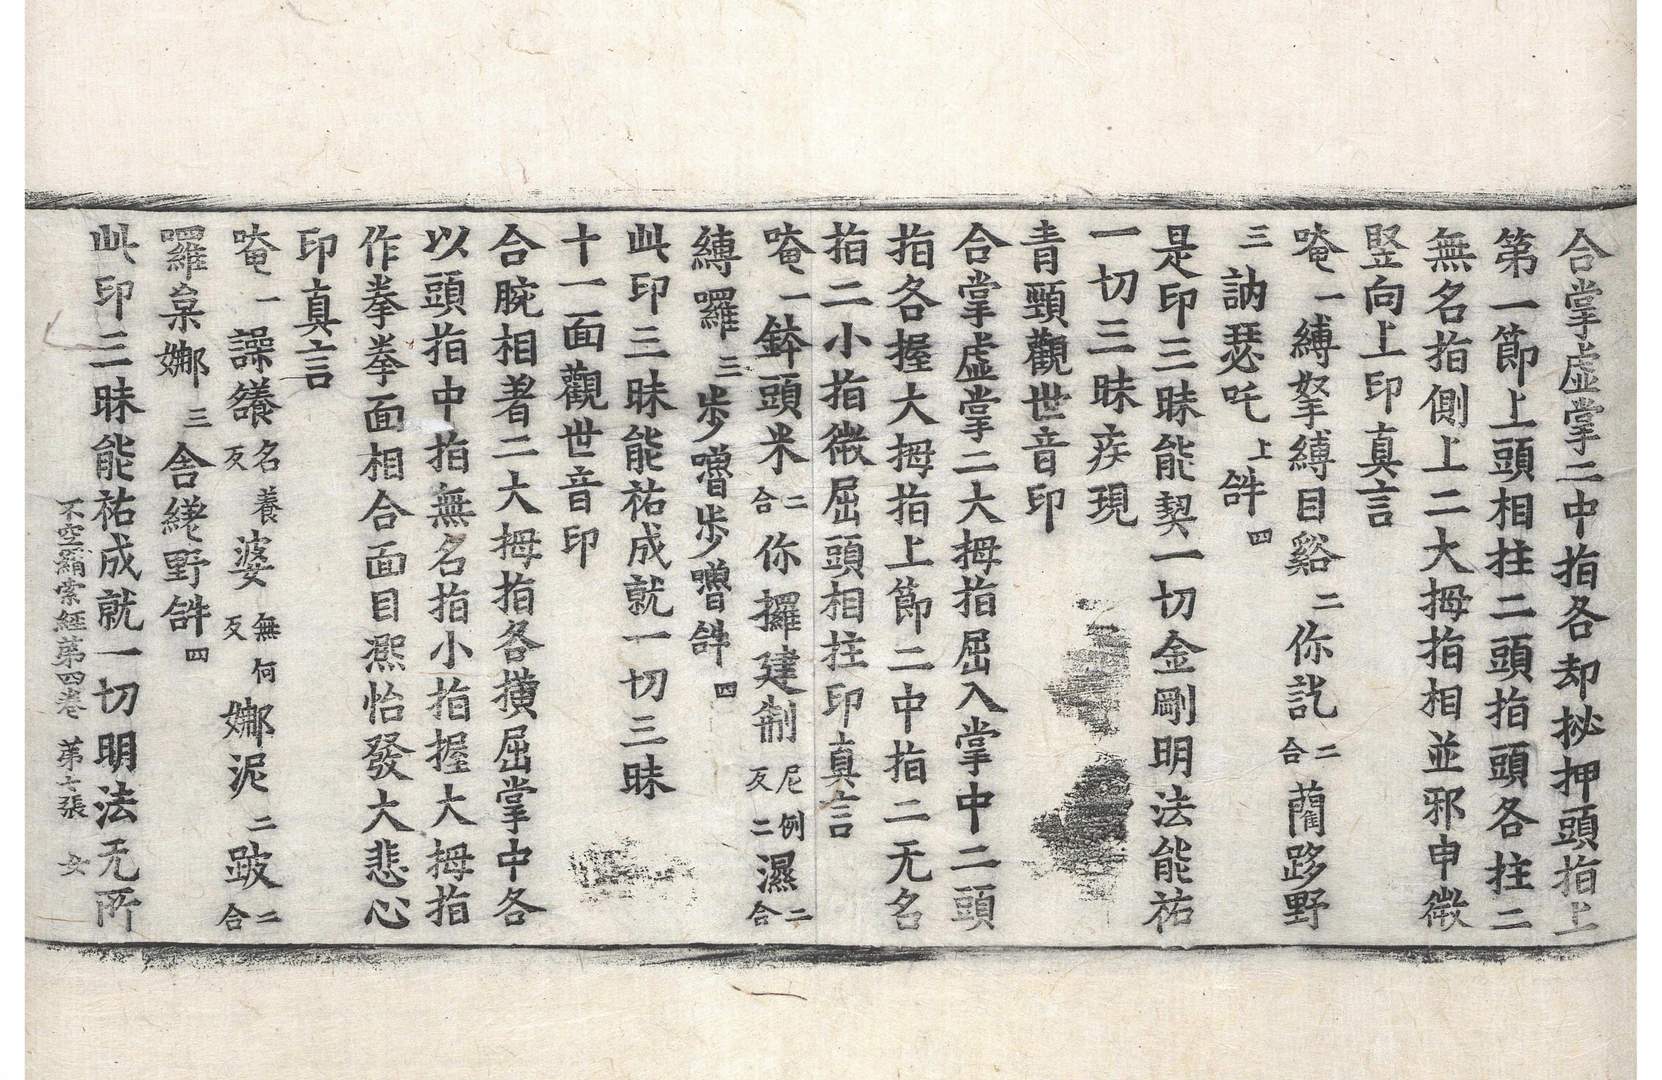 合掌虛掌二中指各却拶押頭指上
第一節上頭相拄二頭指頭各拄二
無名指側上二大拇指相並邪申微
竪向上印真言
唵一縛拏縛目谿二你訖二合蘭跢野
三訥瑟吒上𤙖四
是印三昧能契一切金剛明法能祐
一切三昧疾現
青頸觀世音印
合掌虛掌二大拇指屈入掌中二頭
指各握大拇指上節二中指二无名
指二小指微屈頭相拄印真言
唵一鉢頭米二合你攞建制尼例反二濕二合
縛囉三步嚕步嚕𤙖四
此印三昧能祐成就一切三昧
十一面觀世音印
合腕相著二大拇指各撗屈掌中各
以頭指中指無名指小指握大拇指
作拳拳面相合面目熈怡發大悲心
印真言
唵一譟䉴名養反婆無何反娜泥二跛二合
囉枲娜三舍䌈野𤙖四
此印三昧能祐成就一切明法无所
不空羂索經第四卷 第七張 女